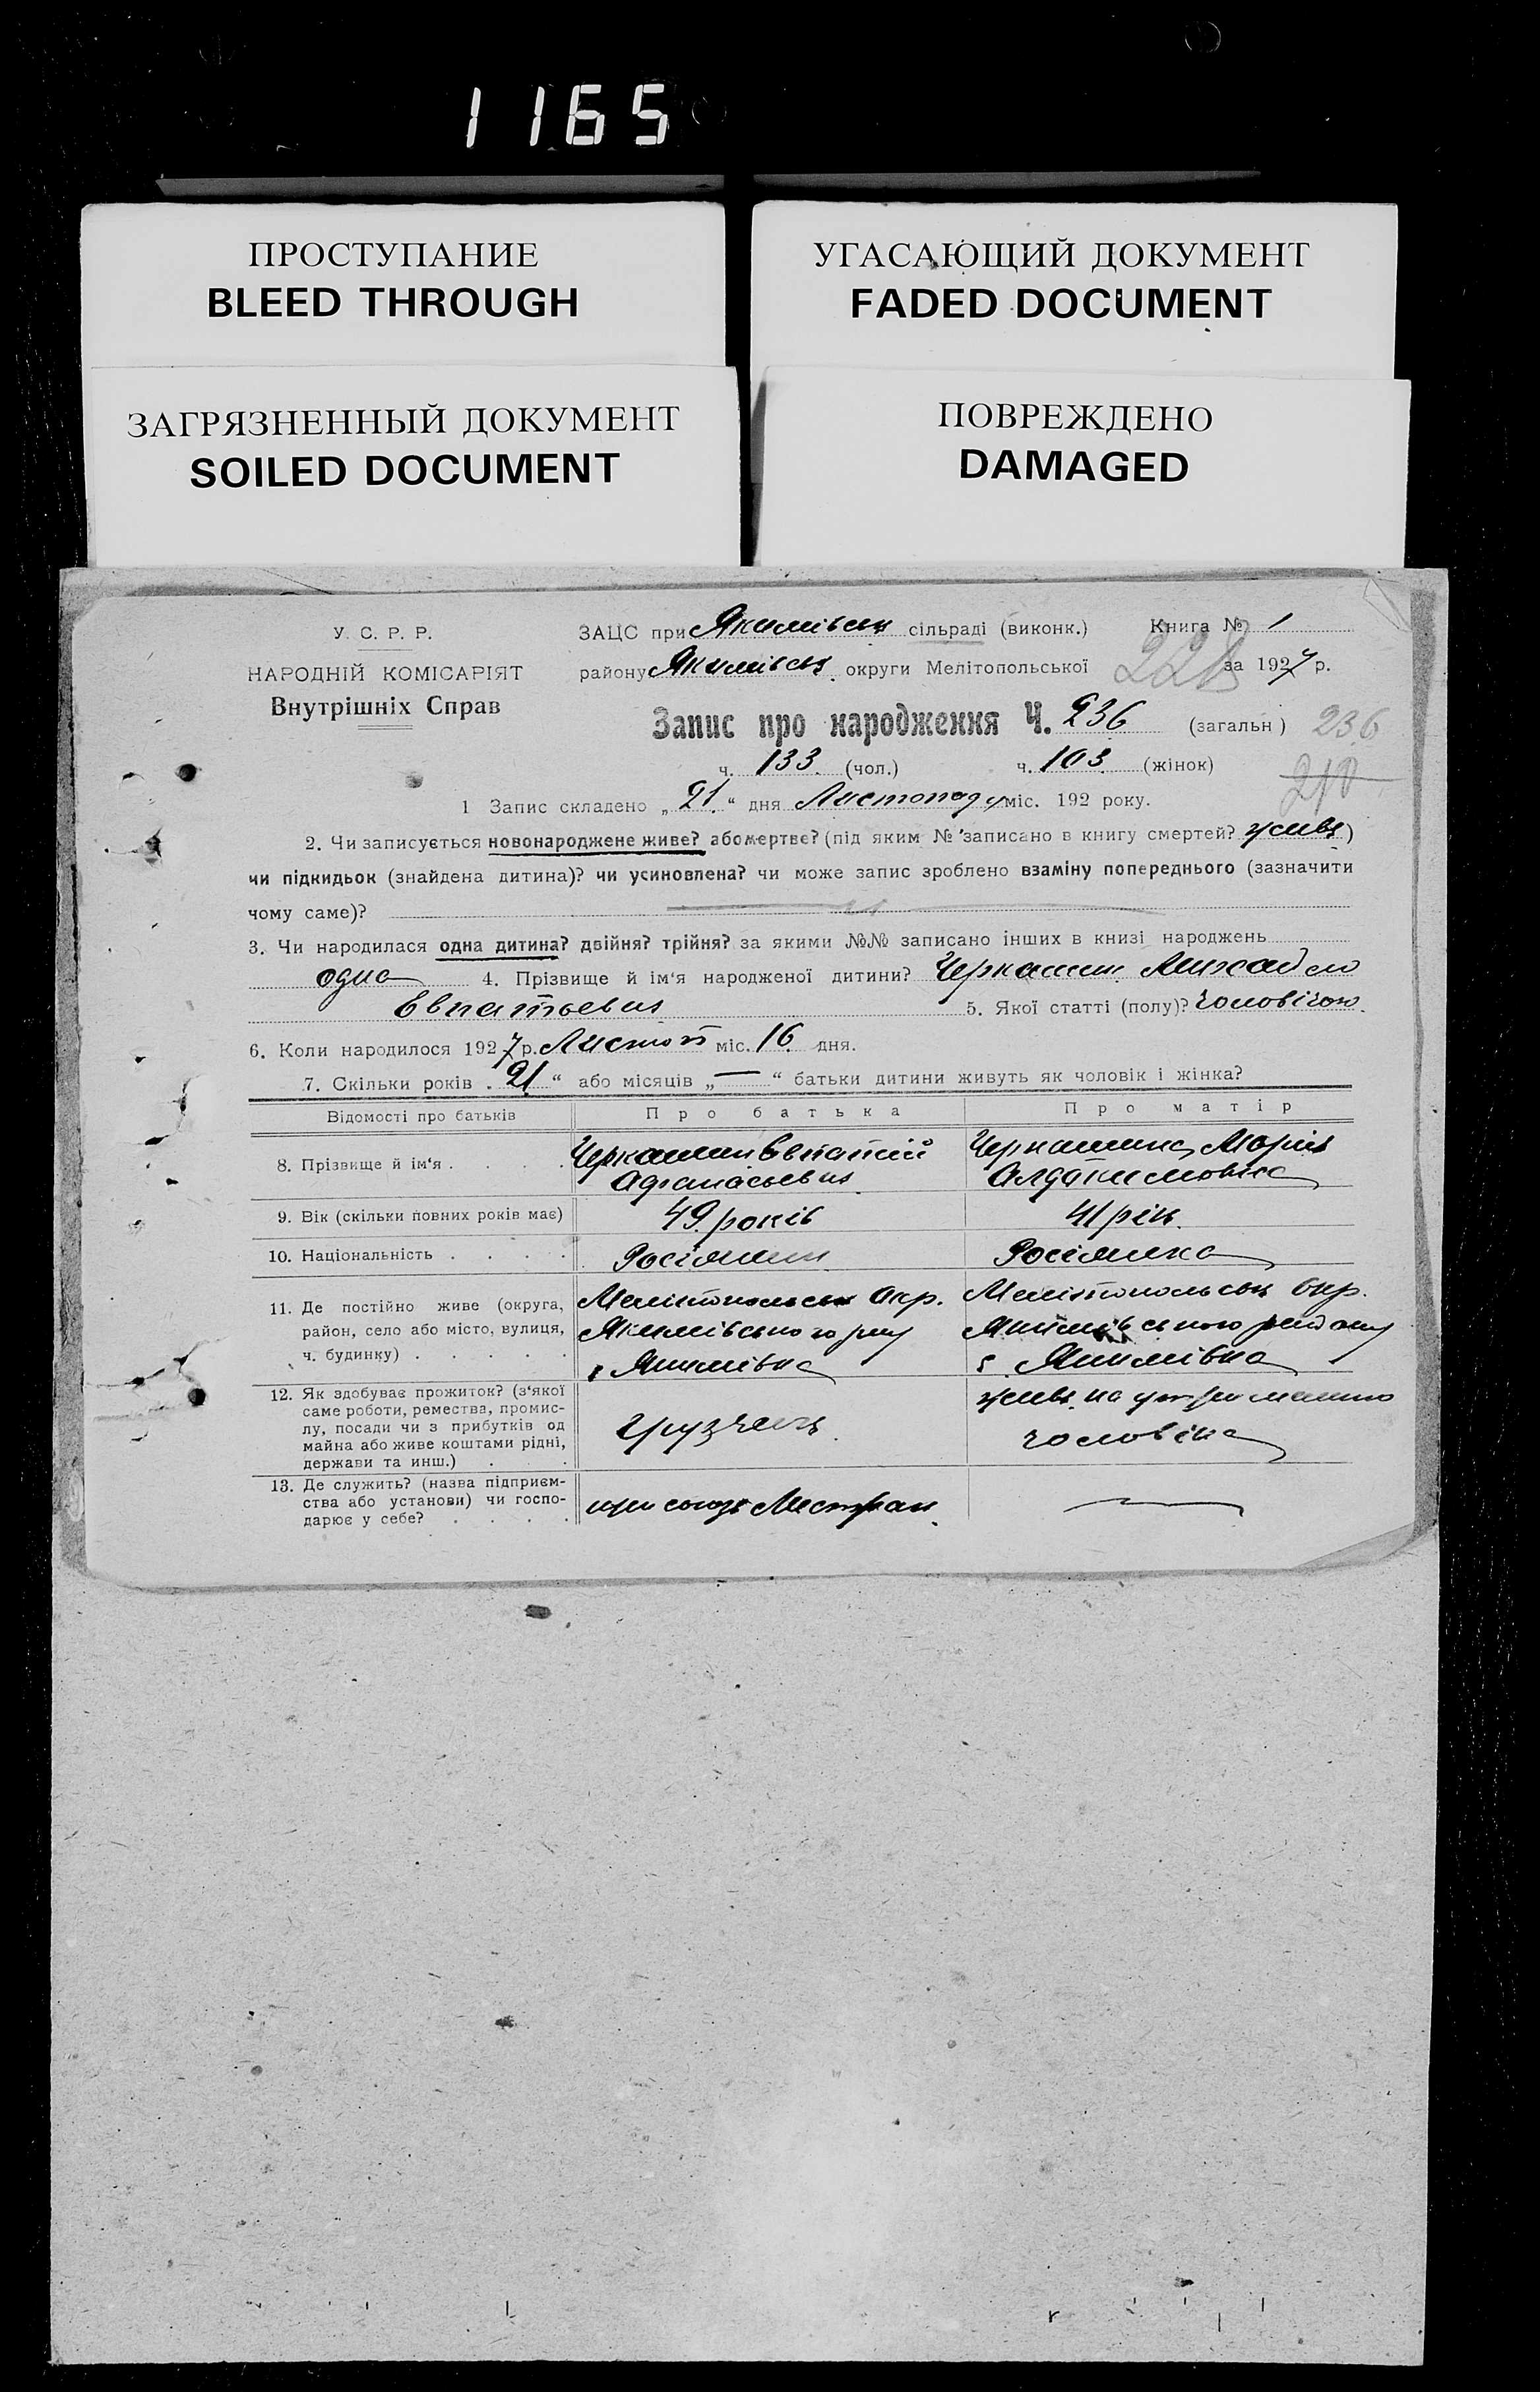 1165
ПРОСТУПАНИЕ
BLEED THROUGH
УГАСАЮЩИЙ ДОКУМЕНТ
FADED DOCUMENT
ЗАГРЯЗНЕННЫЙ ДОКУМЕНТ
SOILED DOCUMENT
ПОВРЕЖДЕНО
DAMAGED
У. С. Р. Р.
НАРОДНІЙ КОМІСАРІЯТ
Внутрішніх Справ
ЗАЦС при Якимівськ сільраді (виконк.) Книга № 1
району Якимівськ округи Мелітопольської за 1927 р.
Запис про народження Ч. 236 (загальн) 236
ч. 133 (чол.) ч. 103 (жінок)
210
1 Запис складено „21“ дня Листопаду міс. 192 року.
2. Чи записується новонароджене живе? або мертве? (під яким № записано в книгу смертей? живе)
чи підкидьок (знайдена дитина)? чи усиновлена? чи може запис зроблено взаміну попереднього (зазначити
чому саме)?
3. Чи народилася одна дитина? двійня? трійня? за якими №№ записано інших в книзі народжень
одна 4. Прізвище й ім‘я народженої дитини? Черкашин Михайло
Евпатьевич 5. Якої статті (полу)? чоловічою
6. Коли народилося 1927 р. Листоп міс. 16 дня.
7. Скільки років „21“ або місяців „—“ батьки дитини живуть як чоловік і жінка?
Відомості про батьків Про батька Про матір
8. Прізвище й ім‘я . . . . Черкашин Евпатий Черкашина Марія
Афанасьевич
9. Вік (скільки повних років має) 49 років 41 рік
10. Національність . . . . Росіянин Росіянка
11. Де постійно живе (округа, Мелітопольськ Окр. Мелітопольськ Окр.
район, село або місто, вулиця, Якимівського р-ну Якимівського району
ч. будинку) . . . . . с Якимівка с. Якимівка
12. Як здобуває прожиток? (з‘якої живе на утриманню
саме роботи, ремества, промис-
лу, посади чи з прибутків од грузчик чоловіка
майна або живе коштами рідні,
держави та инш.) . .
13. Де служить? (назва підприєм-
ства або установи) чи госпо- при союзі
дарює у себе? . . . .